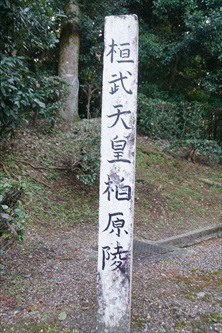 桓武天皇柏原陵